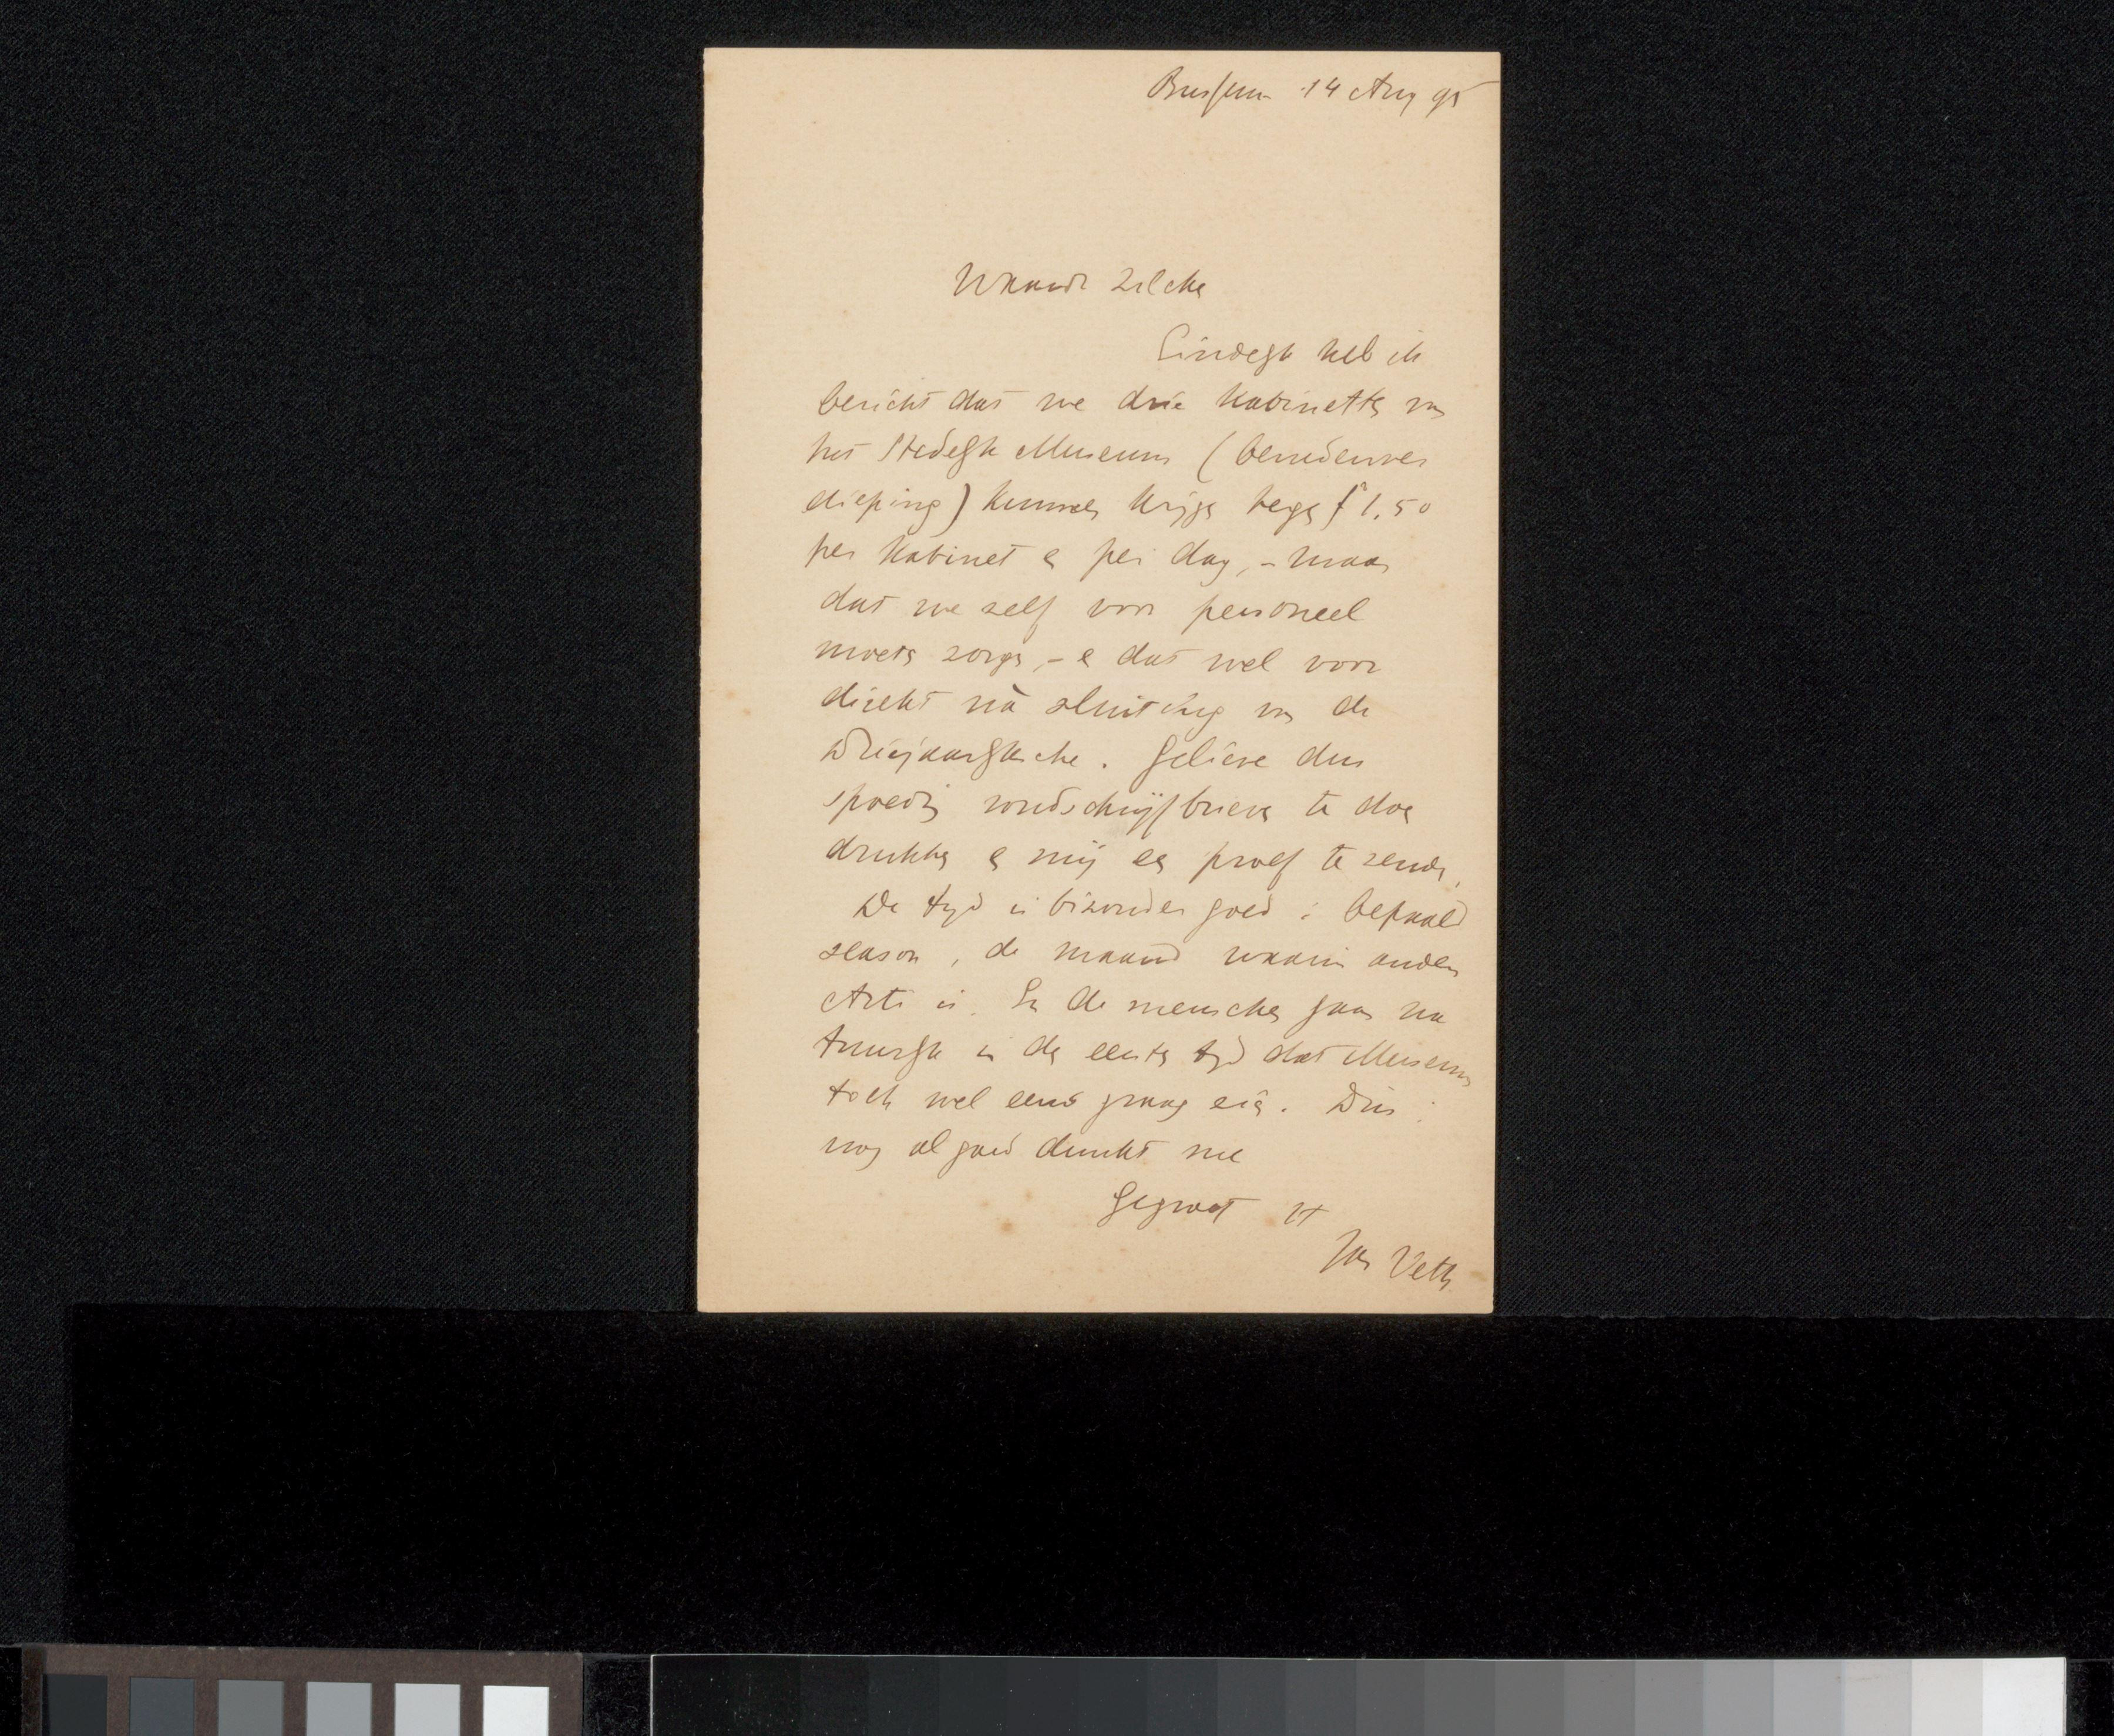 Bussum 14 Aug 95
Waarde Zilcken
Eindelijk heb ik
bericht dat we drie kabinetten van
het Stedelijk Museum (benedenver
dieping) kunnen krijgen tegen f 1.50
per kabinet en per dag, – maar
dat we zelf voor personeel
moeten zorgen, – en dat wel voor
direkt nà sluiting van de
Driejaarlijksche. Gelieve dus
spoedig rondschrijfbrieven te doen
drukken en mij een proef te zenden.
De tijd is bizonder goed: bepaald
season, de maand waarin anders
Arti is. En de menschen gaan na
tuurlijk in den eersten tijd dat Museum
toch wel eens graag eens. Dus:
nog al goed dunkt me
Gegroet tt
Jan Veth